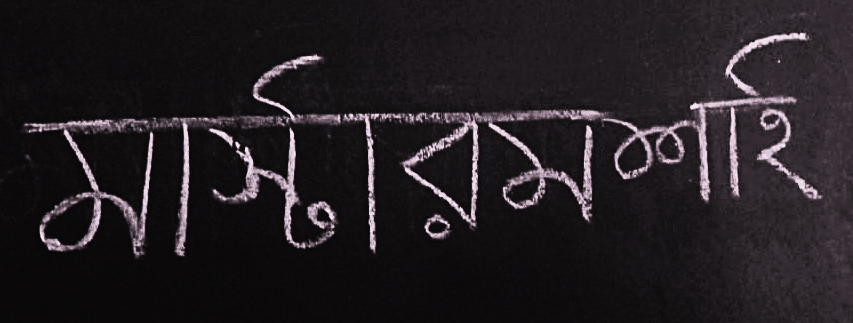 মাস্টারমশাই